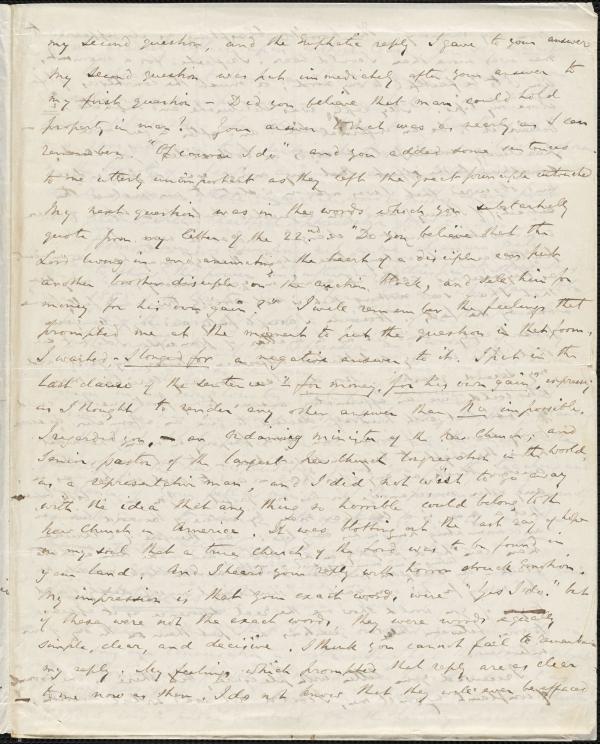 my second question, and the emphatic reply I gave to your answer
My second question was put immediately after your answer to
my first question – Did you believe that man could hold
property in man? Your answer to that was as nearly as I can
remember. "Of course I do" and you added some sentences
to me utterly unimportant as they left the great principle untouched
My next question was in the words which you substantially
quote from my letter of the 22nd. "Do you believe that the
Lord living in and animating the heart of a disciple can put
another brother disciple on the auction block, and sell him for
money for his own gain?" I well remember the feelings that
prompted me at the moment to put the question in that form.
I wanted, – I longed for a negative answer to it. I put in the
last clause of the sentence "for money, for his own gain",
as I thought to render any other answer than No impossible.
I regarded you, – an Ordaining minister of the New Church, and
Senior pastor of the largest New Church Congregation in the world,
as a representative man, and I did not wish to go away
with the idea that any thing so horrible could belong to the
New Church in America. It was blotting out the last ray of hope
in my soul that a true church of the Lord was to be found in
your land. And I heard your reply with horror struck emotion.
My impression is that your exact words, were "Yes I do." but
if these were not the exact words, they were words equally
simple, clear, and decisive. I think you cannot fail to remember
my reply. My feelings which prompted that reply are as clear
to me now as then. I do not know that they will ever be effaced